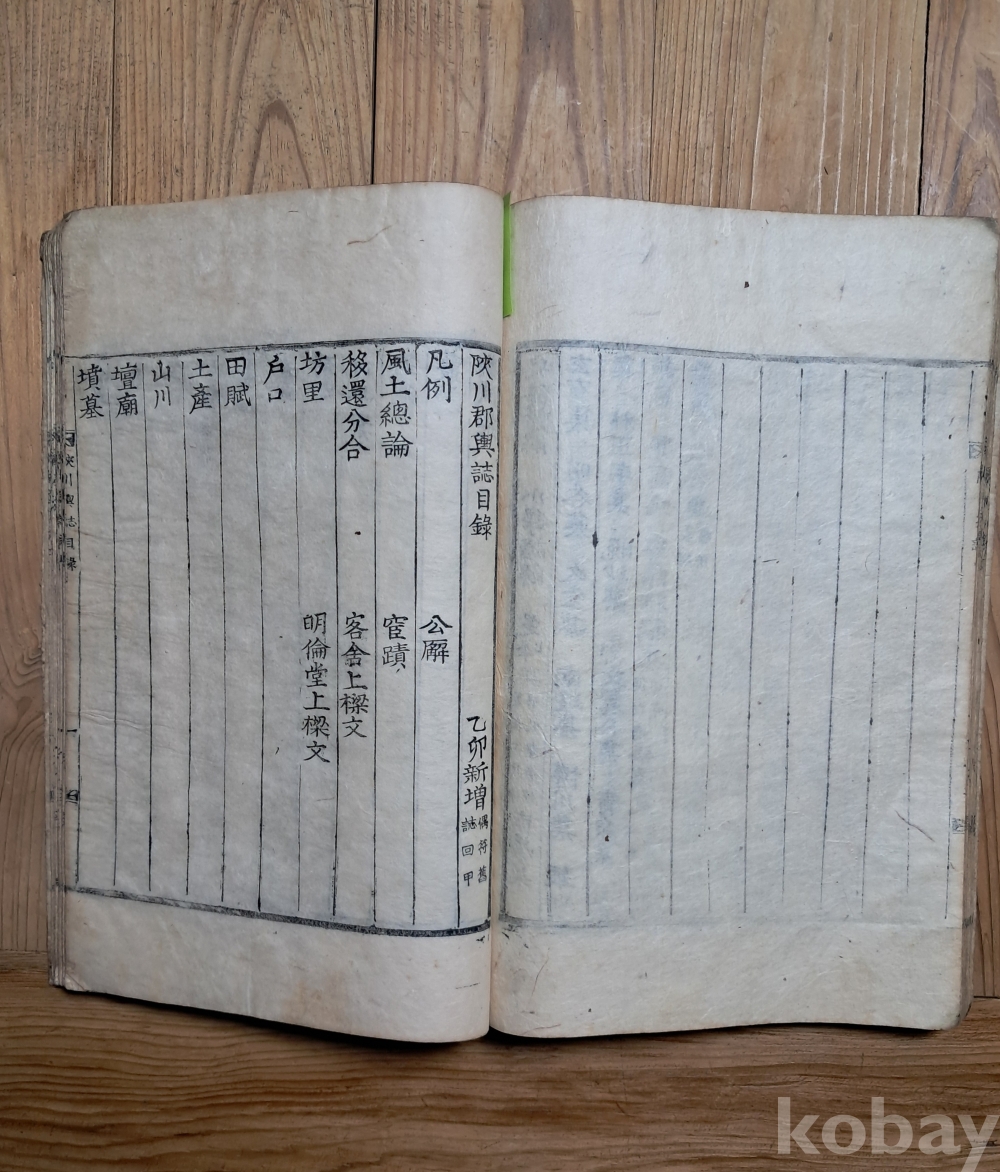 陜川郡輿誌目錄 乙卯新增 偶符舊誌回甲
凡例 公廨
風土總論 宦蹟
移還分合 客舍上樑文
坊里 明倫堂上樑文
戶口
田賦
土產
山川
壇廟
墳墓
陜川輿誌目錄
一
kobay